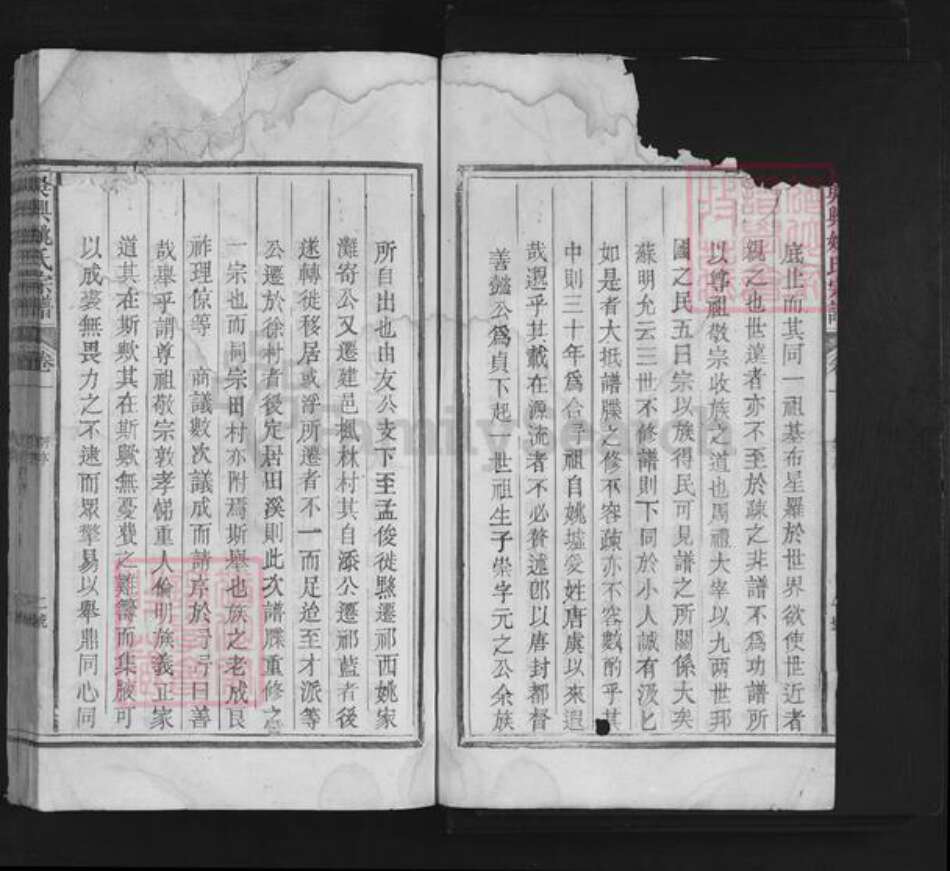 底止而其同一祖基布星羅於世界欲使世近者
親之也世遠者亦不至於疎之非譜不爲功譜所
以尊祖敬宗收族之道也周禮大宰以九兩世邦
國之民五曰宗以族得民可見譜之所關係大矣
蘇明允云三世不修譜則下同於小人誠有汲匕
如是者大抵譜牒之修不容疎亦不容數酌乎其
中則三十年爲合尋祖自姚墟受姓唐虞以來遐
哉邈乎其載在源流者不必贅述卽以唐封都督
善懿公爲貞下起一世祖生子崇字元之公余族
所自出也由友公支下至孟俊徙縣遷祁西姚家
灘寄公又遷建邑楓林村其自添公遷祁藍者後
遂轉徙移居或浮所遷者不一而足迨至才派等
公遷於徐村者後定居田溪則此次譜牒重修之
一宗也而祠宗田村亦附焉斯舉也族之老成良
祚理倞等 商議數次議成而請序於予予曰善
哉舉乎謂尊祖敬宗敦孝悌重人倫明族義正家
道其在斯歟其在斯歟無憂費之難籌而集腋可
以成裘無畏力之不逮而眾擎易以舉鼎同心同
吳興姚氏宗譜 卷一